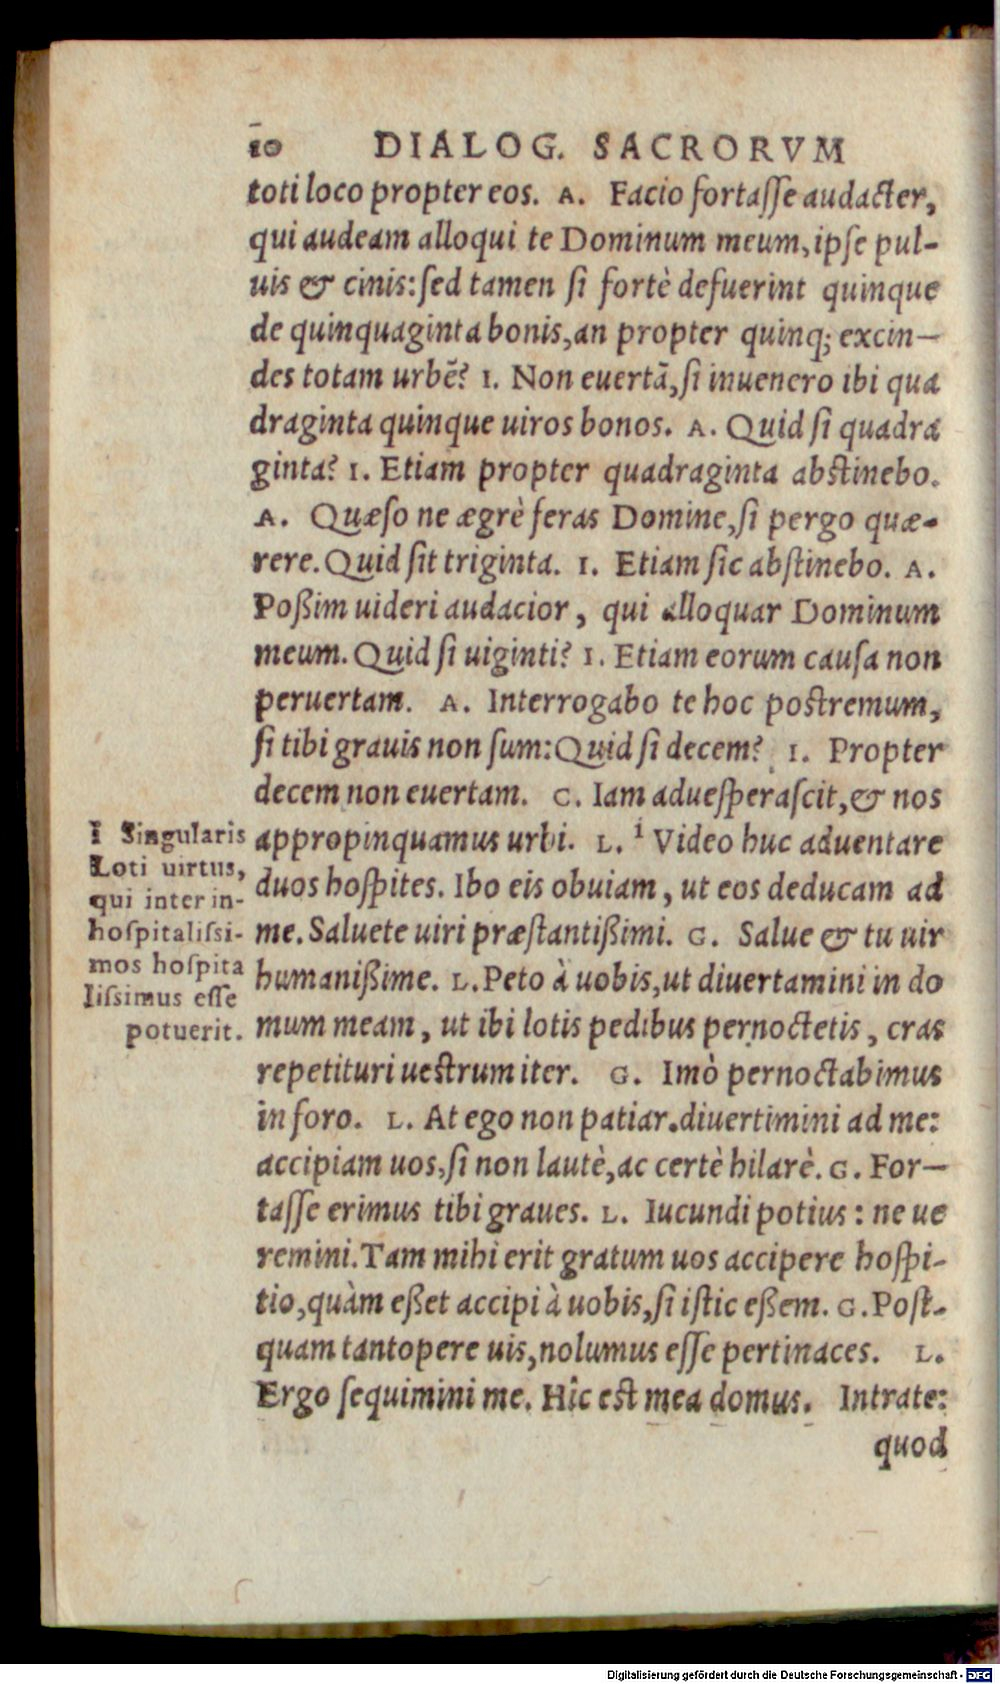 10 DIALOG. SACRORVM
toti loco propter eos. A. Facio fortasse audacter,
qui audeam alloqui te Dominum meum, ipse pul-
uis & cinis: sed tamen si fortè defuerint quinque
de quinquaginta bonis, an propter quinq; excin-
des totam urbẽ? I. Non euertã, si inuenero ibi qua
draginta quinque uiros bonos. A. Quid si quadra
ginta? I. Etiam propter quadraginta abstinebo.
A. Quæso ne ægrè feras Domine, si pergo quæ-
rere. Quid sit triginta. I. Etiam sic abstinebo. A.
Poßim uideri audacior, qui alloquar Dominum
meum. Quid si uiginti? I. Etiam eorum causa non
peruertam. A. Interrogabo te hoc postremum,
si tibi grauis non sum: Quid si decem? I. Propter
decem non euertam. C. Iam aduesperascit, & nos
appropinquamus urbi. L. 1 Video huc aduentare
duos hospites. Ibo eis obuiam, ut eos deducam ad
me. Saluete uiri præstantißimi. G. Salue & tu uir
humanißime. L. Peto à uobis, ut diuertamini in do
mum meam, ut ibi lotis pedibus pernoctetis, cras
repetituri uestrum iter. G. Imò pernoctabimus
in foro. L. At ego non patiar. diuertimini ad me:
accipiam uos, si non lautè, ac certè hilarè. G. For-
tasse erimus tibi graues. L. Iucundi potius: ne ue
remini. Tam mihi erit gratum uos accipere hospi-
tio, quàm eßet accipi à uobis, si istic eßem. G. Post-
quam tantopere uis, nolumus esse pertinaces. L.
Ergo sequimini me. Hîc est mea domus. Intrate:
quod
1 Singularis
Loti uirtus,
qui inter in-
hospitalissi-
mos hospita
lissimus esse
potuerit.
Digitalisierung gefördert durch die Deutsche Forschungsgemeinschaft - DFG